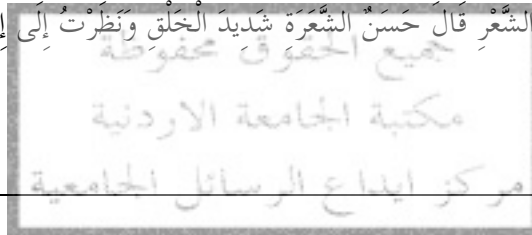 الشَّعْرِ قَالَ حَسَنُ الشَّعَرَةِ شَدِيدَ الْخَلْقِ وَنَظَرْتُ إِلَى
جميع الحقوق محفوظة
مكتبة الجامعة الاردنية
مركز ايداع الرسائل الجامعية